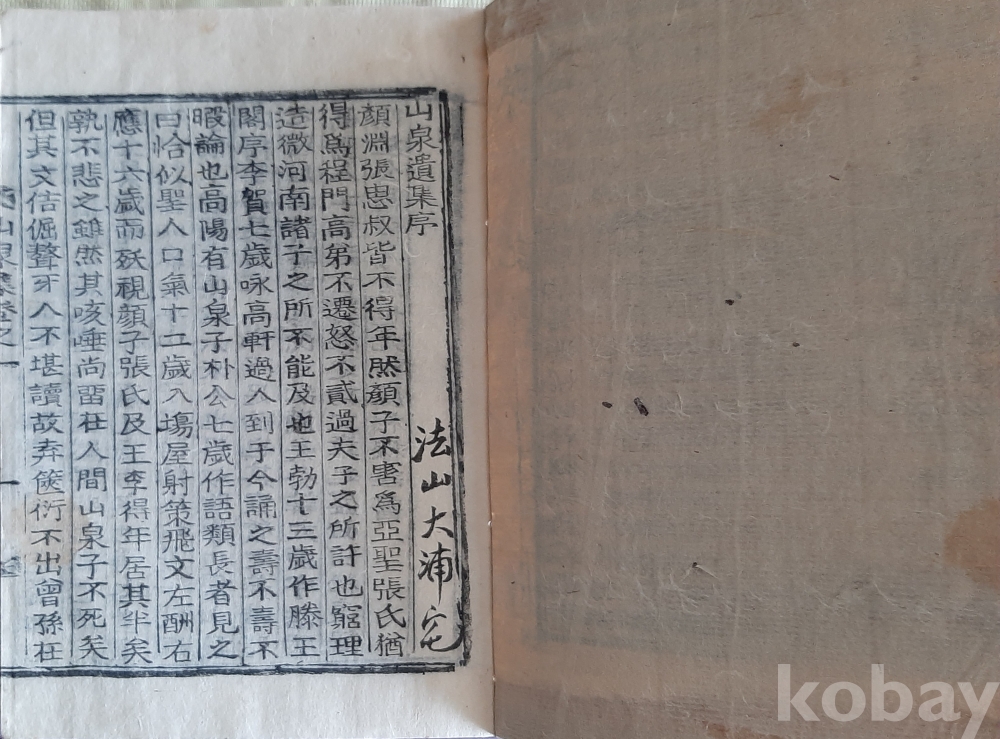 山泉遺集序
法山大浦宅
顔淵張思叔皆不得年然顔子不害爲亞聖張氏猶
得爲程門高第不遷怒不貳過夫子之所許也窮理
造微河南諸子之所不能及也王勃十三歲作滕王
閣序李賀七歲咏高軒過人到于今誦之壽不壽不
暇論也高陽有山泉子朴公七歲作語類長者見之
曰恰似聖人口氣十二歲入場屋射策飛文左酬右
應十六歲而殀視顔子張氏及王李得年居其半矣
孰不悲之雖然其咳唾尚畱在人間山泉子不死矣
但其文佶倔聱牙人不堪讀故弆篋衍不出曾孫在
山泉集卷之一
kobay